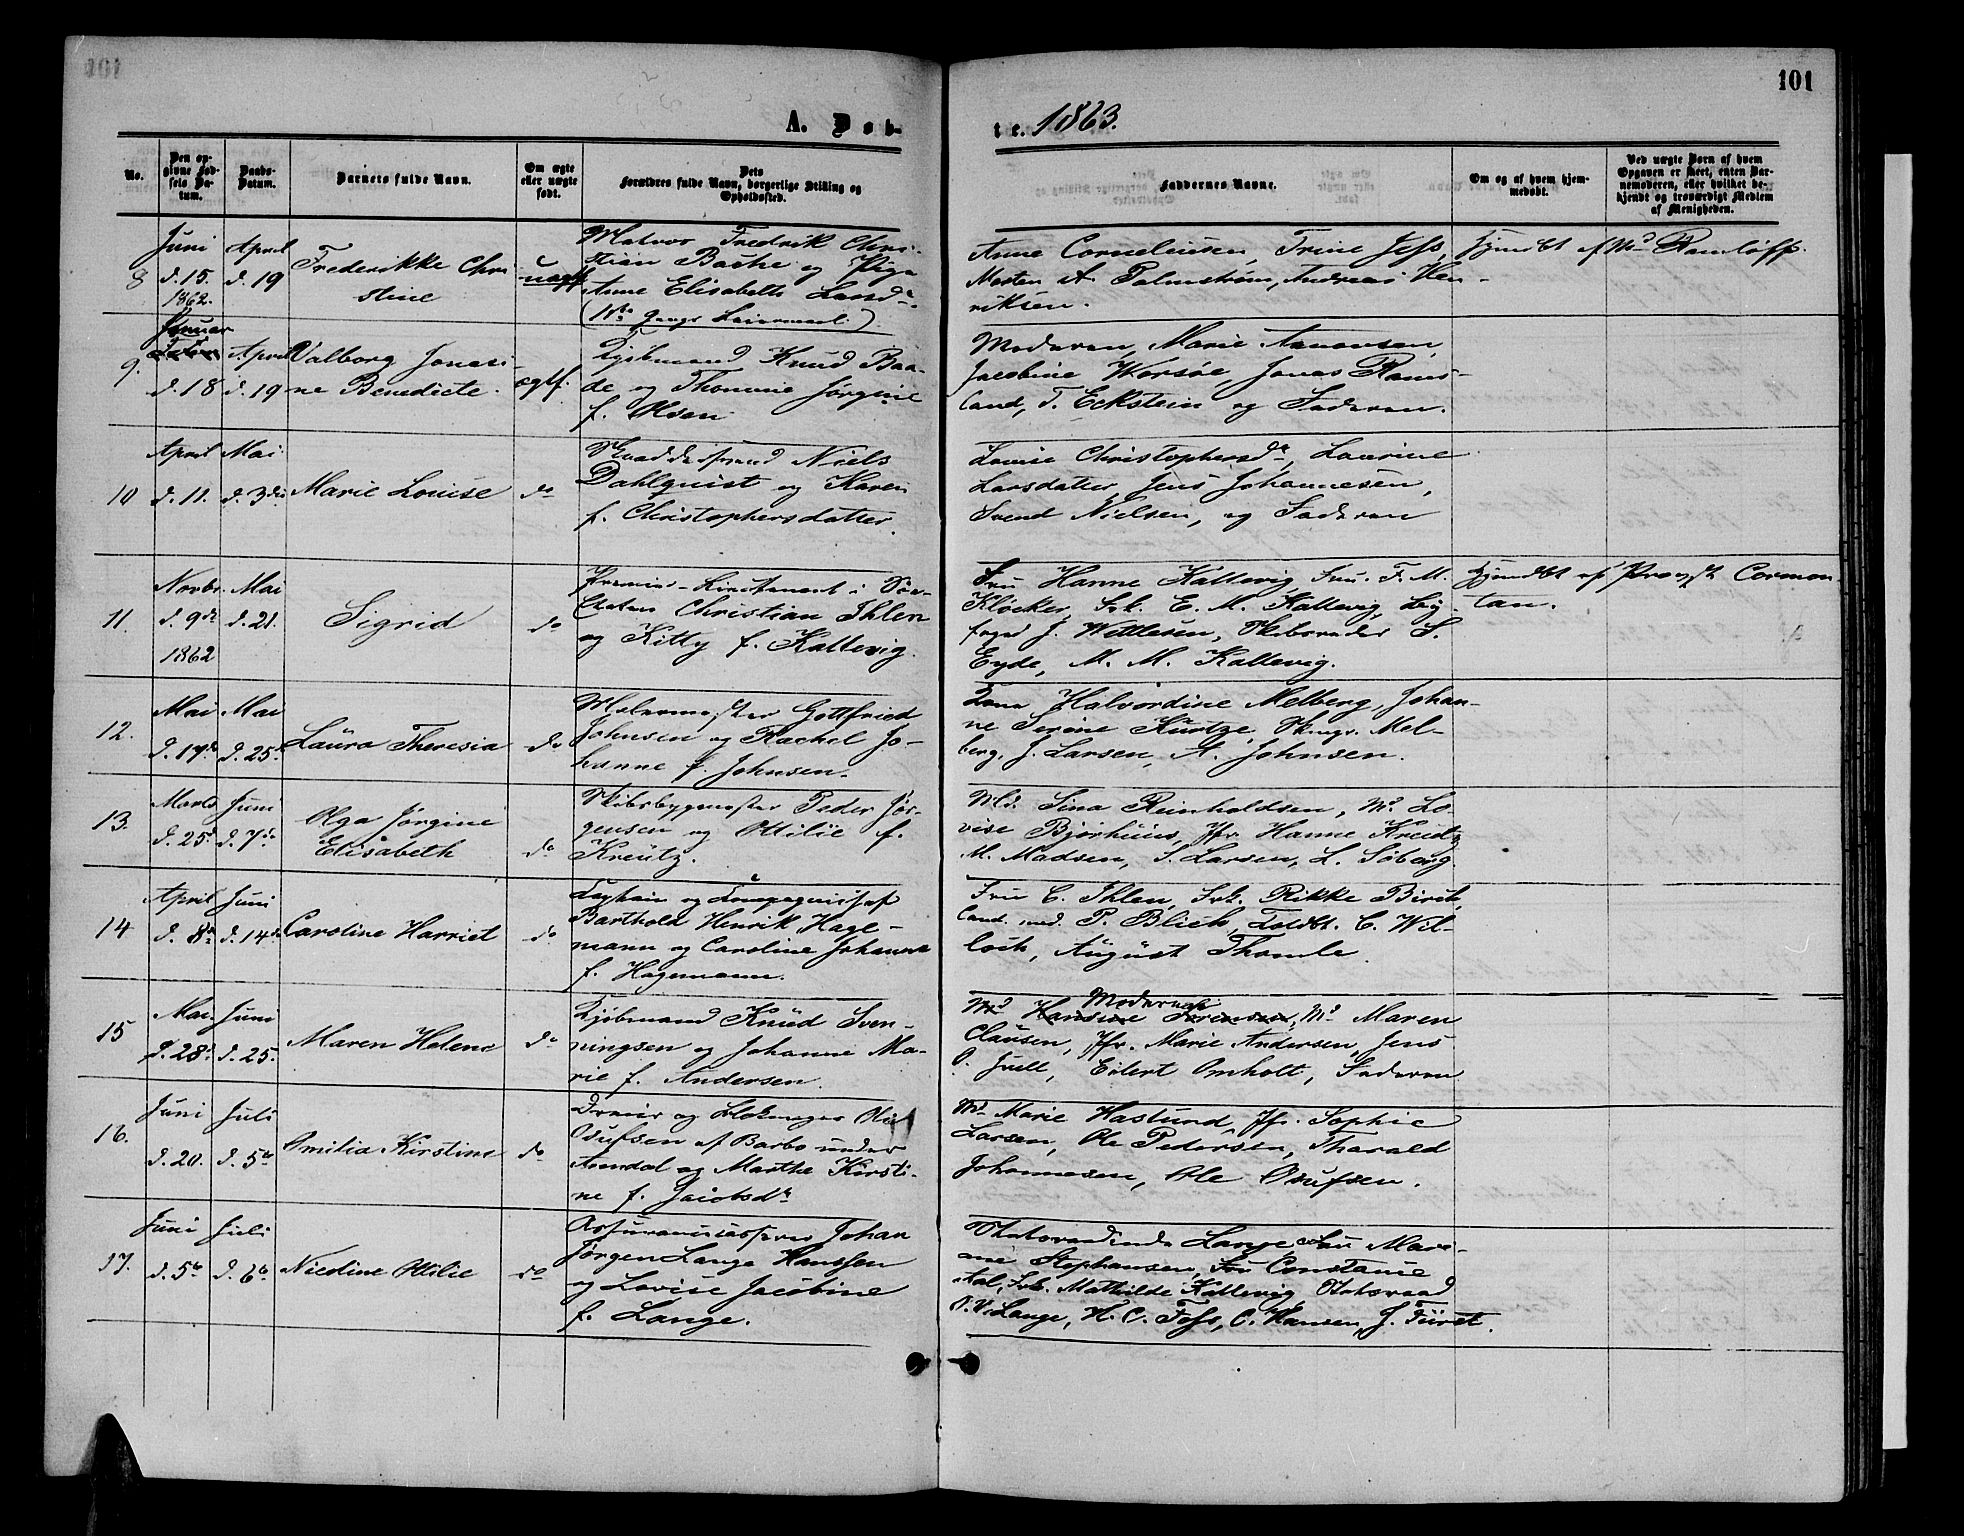 101
A. Døb-
te. 1863.
No.
Den op-
givne Fød-
sels Da-
tum.
Daabs-
Datum.
Barnets fulde Navn.
Om ægte
eller uægte
født.
Dets
Forældres fulde Navn, borgerlige Stilling og
Opholdssted.
Faddernes Navne.
Om og af hvem hjem-
medøbt.
Ved uægte Børn af hvem
Opgaven er skeet, enten Bar-
nemoderen, eller hvilket be-
kjendt og troværdigt Medlem
af Menigheden.
8
Juni
d. 15.
1862.
April
d. 19
Frederikke Chri
stine
uægtf
Matros Fredrik Chri-
stian Bache og Pige
Anne Elisabeth Larsdr.
(1ste Gangs Leiermaal)
Anne Corneliusen, Trine Jess
Morten A Palmstrøm, Andreas Hen-
riksen.
hjemdøbt af Md
9.
Januar
d. 18
April
d. 19
Valborg Jonasi-
ne Benedicte.
ægtf.
Kjøbmand Knud Baa-
de og Thomine Jørgine
f. Olsen
Moderen, Marie Aanonsen,
Jacobine Worsøe, Jonas Rams-
land, T. Eckstein og Faderen.
10
April
d. 11.
Mai
d. 3die
Marie Louise
do
Niels
Dahlquist og Karen
f. Christophersdatter
Lovise Christophersdr, Laurine
Larsdatter, Jens Johannesen,
Svend Nielsen, og Faderen
11.
Novbr.
d. 9de
1862
Mai
d. 21.
Sigrid
do
Premier-Lieutenant i Søe-
Etaten Christian Ihlen
og Kitty f. Kallevig.
Fru Hanne Kallevig Fru. F. M.
Klöcker, Frk. E. M. Kallevig, By-
foged J. Wettlesen, Skibsreder S.
Eyde, M. M. Kallevig.
hjemdøbt af Provst Cormon-
tan.
12.
Mai
d. 17de
Mai
d. 25de
Laura Theresia
do
Malermester Gottfried
Johnsen og Rachel Jo-
hanne f. Johnsen.
Halvordine Melberg, Johan-
ne Serine Kurtze, Mel-
berg, J. Larsen, A. Johnsen.
13.
Marts
d. 25de
Juni
d. 7de
Olga Jørgine
Elisabeth
do
Skibsbygmester Peder Jør-
gensen og Ottilie f.
Kreutz.
Md. Sina Reinholdsen, Md Lo-
vise Bjørhuus, Jfr. Hanne Kreutz
M. Madsen, S. Larsen, L. Søberg.
14
April
d. 8de
Juni
d. 14de
Caroline Harriet
do
Captain og Compagnichef
Barthold Henrik Hage-
mann og Caroline Johanne
f. Hagemann.
Fru C. Ihlen, Frk. Rikke Birch,
Cand. med P. Blich, Toldbt. C. Wil-
loch, August Thomle.
15
Mai.
d. 28de
Juni
d. 25.
Maren Helene
do
Kjøbmand Knud Sven-
ningsen og Johanne Ma-
rie f. Andersen.
Moderen
Md Hansine Sørensen, Md Maren
Clausen, Jfr. Marie Andersen, Jens
O. Juell, Eilert Omholt, Faderen
16.
Juni
d. 20.
Juli
d. 5te
Omilia Kirstine
do
Dreier og Blokmager Ole
Osufsen af Barbo under
Arendal og Marthe Kirsti-
ne f. Jacobsdr
Md Marie Haslund, Jfr. Sophie
Larsen, Ole Pedersen, Tharald
Johannesen, Ole Osufsen.
17.
Juni
d. 5te
Juli
d. 6te
Nicoline Ottilie
do
Johan
Jørgen Lange Hanssen
og Lovise Jacobine
f. Lange.
Statsraadinde Lange, Fru Mari-
ne Stephansen, Fru Constance
Aal, Frk. Mathilde Kallevig Statsraad
O. V. Lange, H. C. Foss, C. Hansen, J. Fürst.